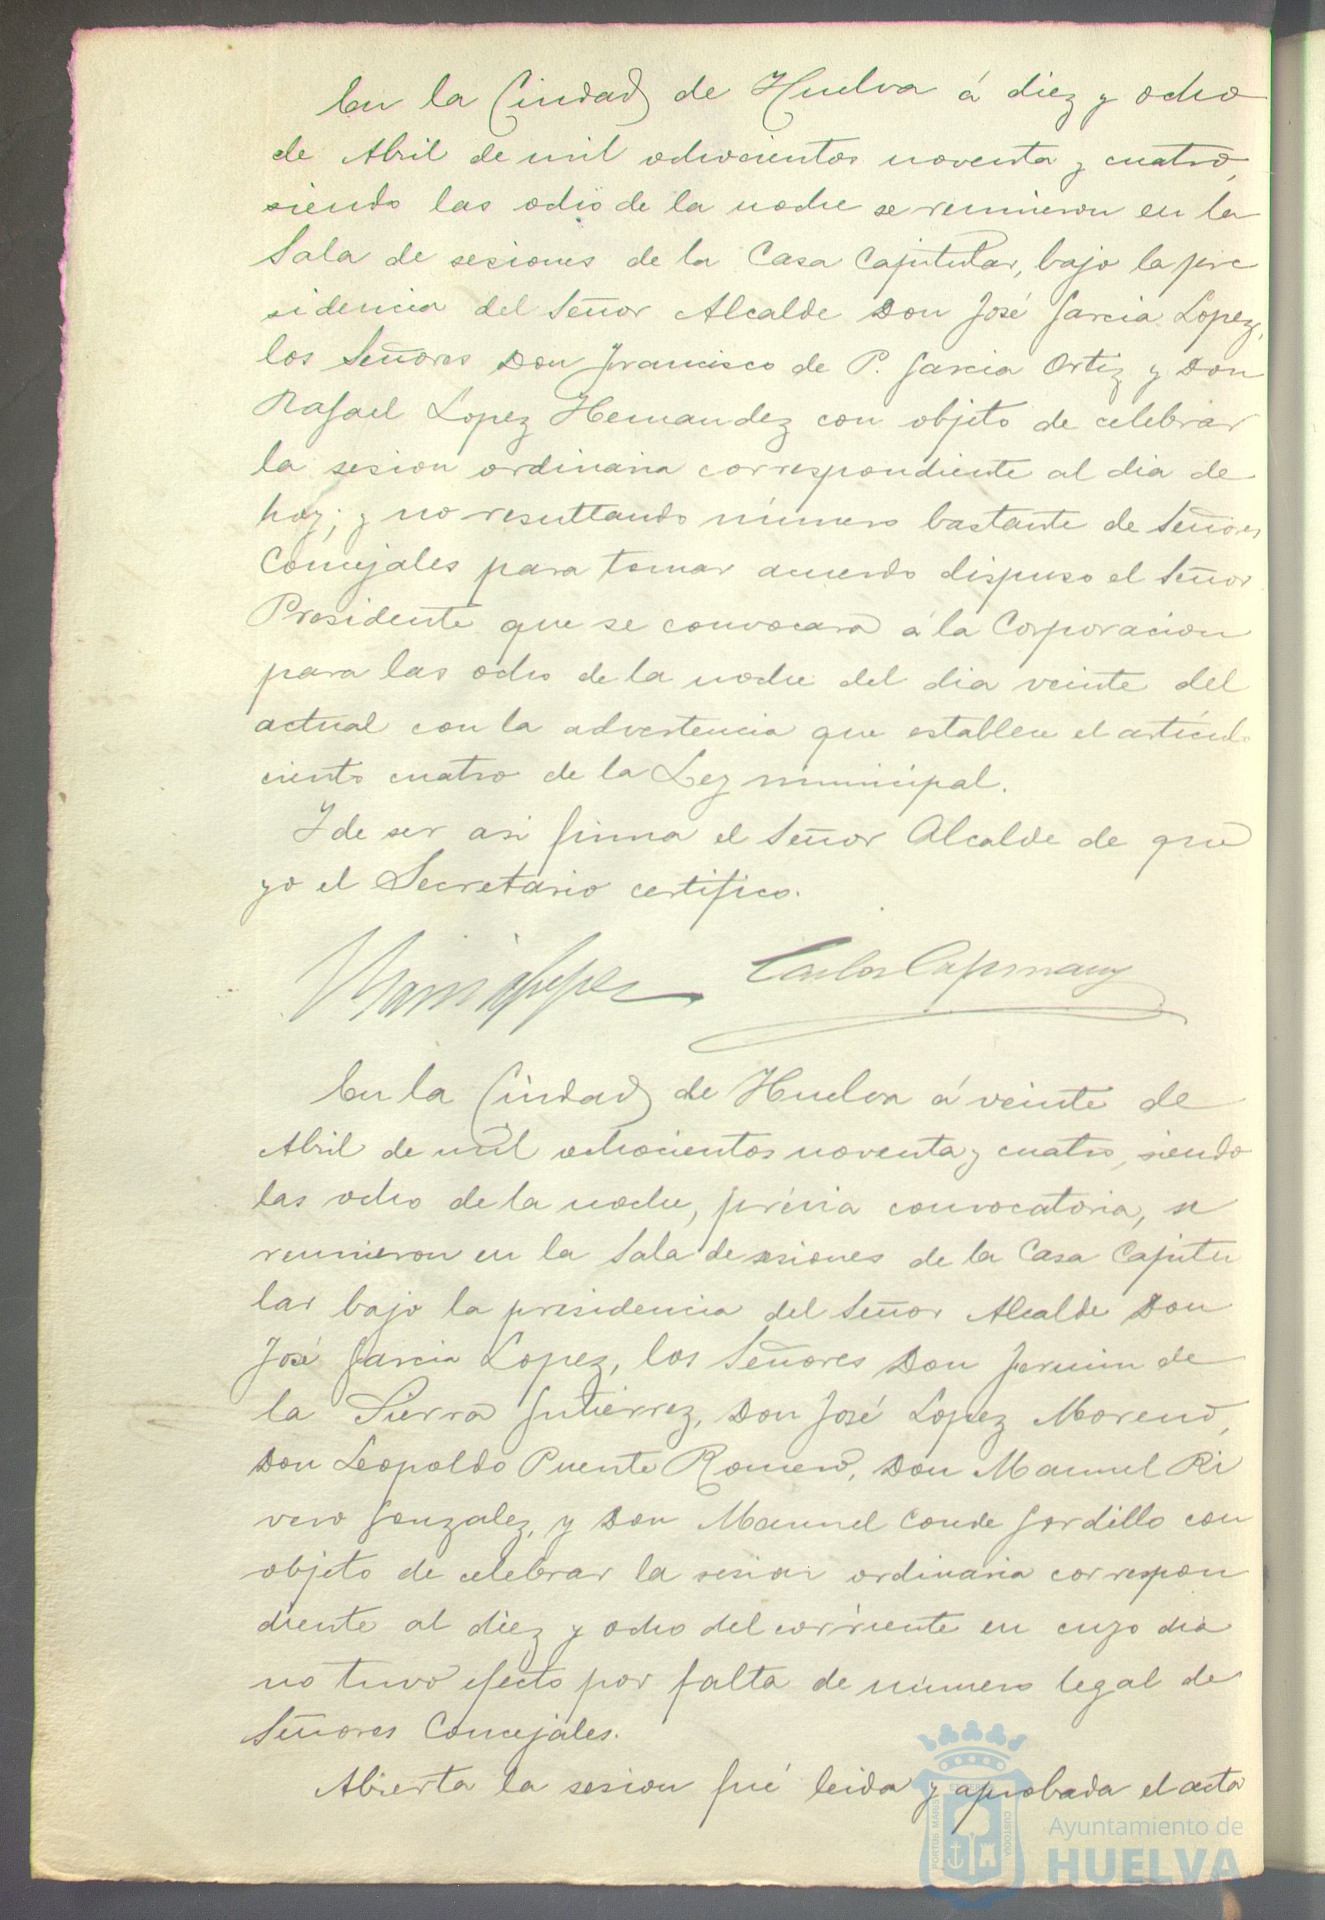 En la Ciudad de Huelva á diez y ocho
de Abril de mil ochocientos noventa y cuatro,
siendo las ocho de la noche se reunieron en la
Sala de sesiones de la Casa Capitular, bajo la pre
sidencia del Señor Alcalde Don José Garcia Lopez,
los Señores Don Francisco de P. Garcia Ortiz y Don
Rafael Lopez Hernandez con objeto de celebrar
la sesion ordinaria correspondiente al dia de
hoy; y no resultando número bastante de Señores
Concejales para tomar acuerdo dispuso el Señor
Presidente que se convocara á la Corporacion
para las ocho de la noche del dia veinte del
actual con la advertencia que establece el artículo
ciento cuatro de la Ley municipal.
Y de ser asi firma el Señor Alcalde de que
yo el Secretario certifico.
Carlos Capmany
En la Ciudad de Huelva á veinte de
Abril de mil ochocientos noventa y cuatro, siendo
las ocho de la noche, prévia convocatoria, se
reunieron en la Sala de sesiones de la Casa Capitu
lar bajo la presidencia del Señor Alcalde Don
José Garcia Lopez, los Señores Don Fermin de
la Sierra Gutierrez, Don José Lopez Moreno,
Don Leopoldo Puente Romero, Don Manuel Ri
vero Gonzalez, y Don Manuel Conde Gordillo con
objeto de celebrar la sesion ordinaria correspon
diente al diez y ocho del corriente en cuyo dia
no tuvo efecto por falta de número legal de
Señores Concejales.
Abierta la sesion fué leida y aprobada el acta
Ayuntamiento de
HUELVA